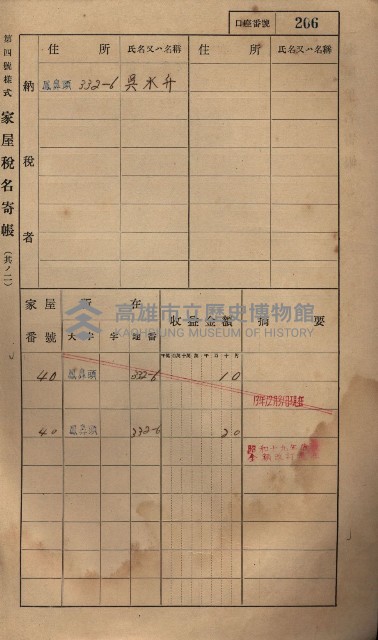 口座番號 266
第四號樣式 家屋稅名寄帳 (其ノ二)
納稅者
住所 氏名又ハ名稱 住所 氏名又ハ名稱
鳳鼻頭 332-6 吳水升
家屋番號 所在 收益金額 摘要
大字 字 地番
高雄市立歷史博物館
KAOHSIUNG MUSEUM OF HISTORY
40 鳳鼻頭 332-6 10
40 鳳鼻頭 332-6 20
昭和十九年